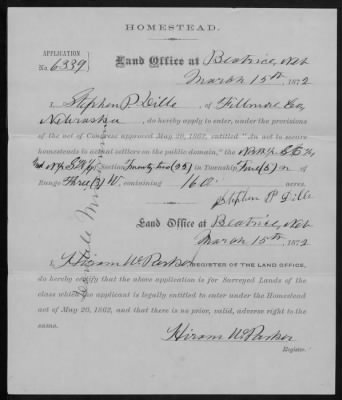 HOMESTEAD.
APPLICATION
No. 6339
Land Office at Beatrice, Neb
March 15th, 1872
I, Stephen P. Dille, of Fillmore Co,
Nebraska, do hereby apply to enter, under the provisions
of the act of Congress approved May 20, 1862, entitled "An act to secure
homesteads to actual settlers on the public domain," the
of Section Twenty two (22) in Township Five (5) N of
Range Three (3) W, containing 160 acres.
Stephen P Dille
Land Office at Beatrice, Neb
March 15th, 1872
I, Hiram W Parker REGISTER OF THE LAND OFFICE,
do hereby certify that the above application is for Surveyed Lands of the
class which the applicant is legally entitled to enter under the Homestead
act of May 20, 1862, and that there is no prior, valid, adverse right to the
same.
Hiram W Parker
Register.